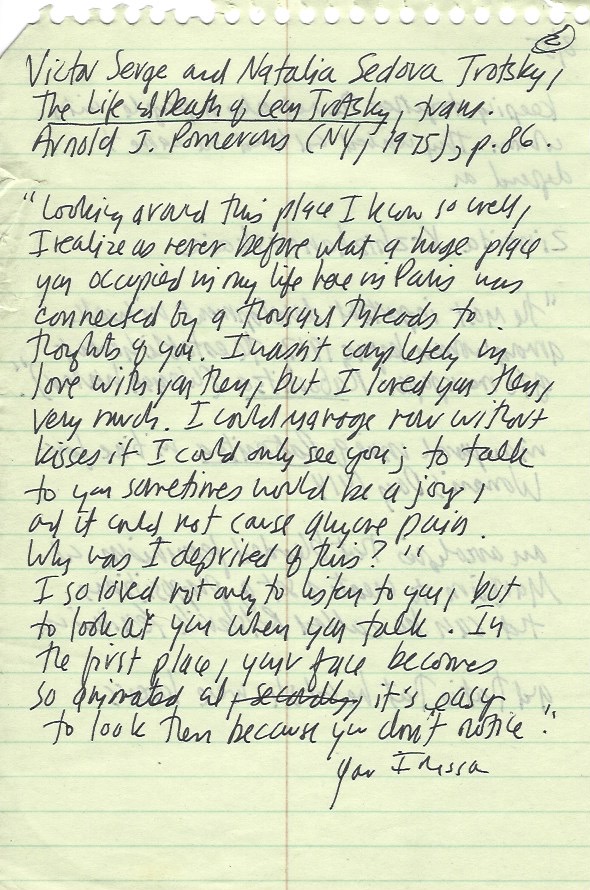 2
Victor Serge and Natalia Sedova Trotsky,
The Life and Death of Leon Trotsky, trans.
Arnold J. Pomerans (NY, 1975), p. 86.
"Looking around this place I know so well,
I realize as never before what a huge place
you occupied in my life here in Paris was
connected by a thousand threads to
thoughts of you. I wasn't completely in
love with you then, but I loved you then,
very much. I could manage now without
kisses if I could only see you; to talk
to you sometimes would be a joy,
and it could not cause anyone pain.
Why was I deprived of this?"
I so loved not only to listen to you, but
to look at you when you talk. In
the first place, your face becomes
so animated and, secondly, it's easy
to look then because you don't notice."
Your Inessa